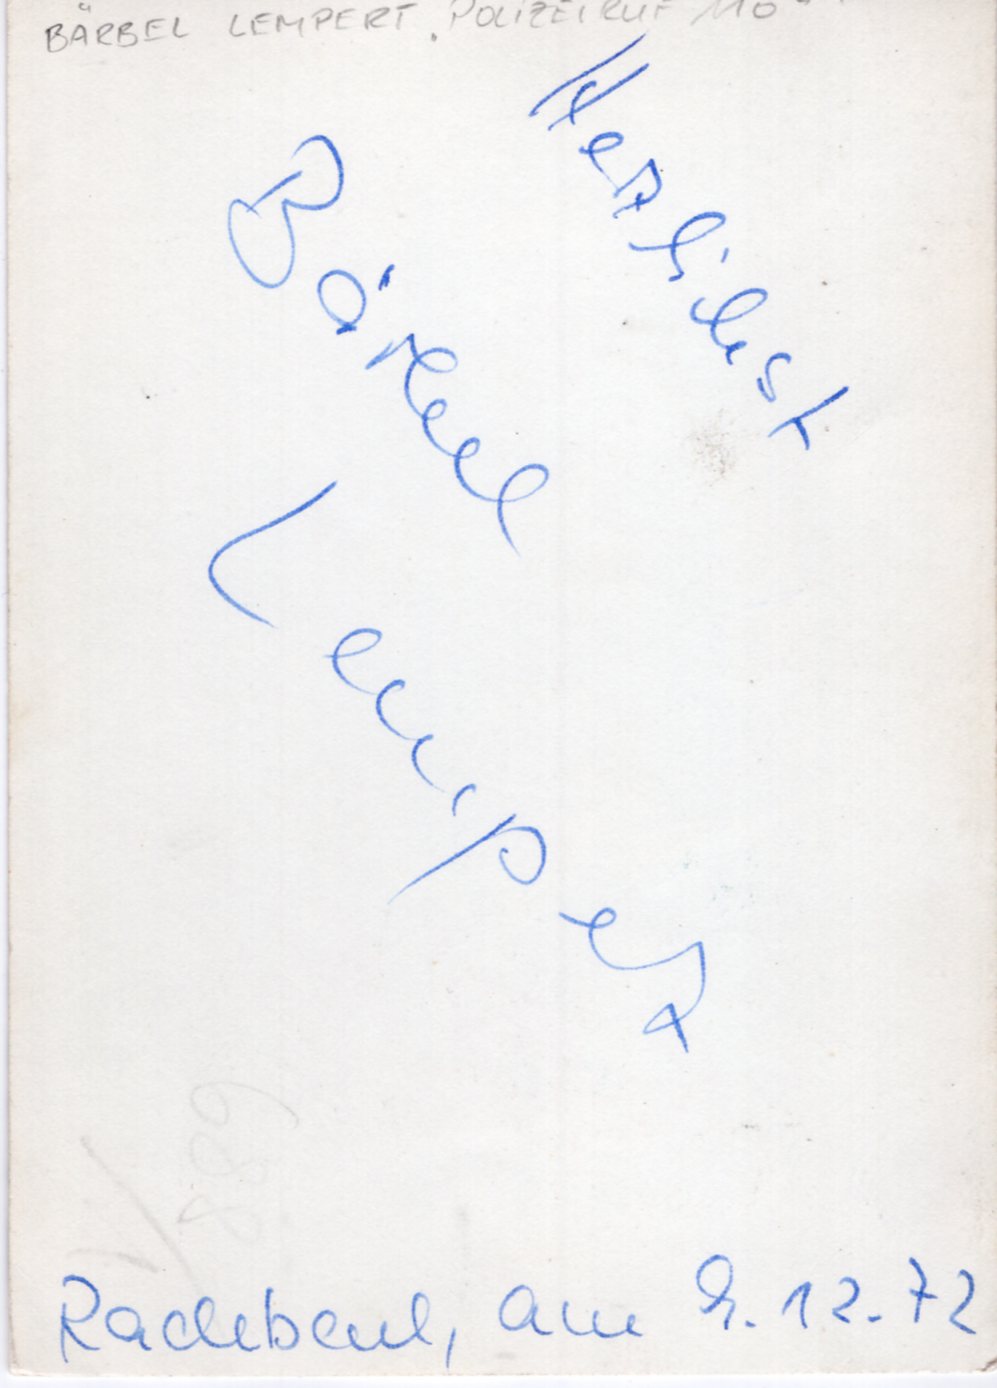 BÄRBEL LEMPERT „POLIZEIRUF 110"
Herzlichst
Bärbel
Lempert
Radebeul, am 9.12.72